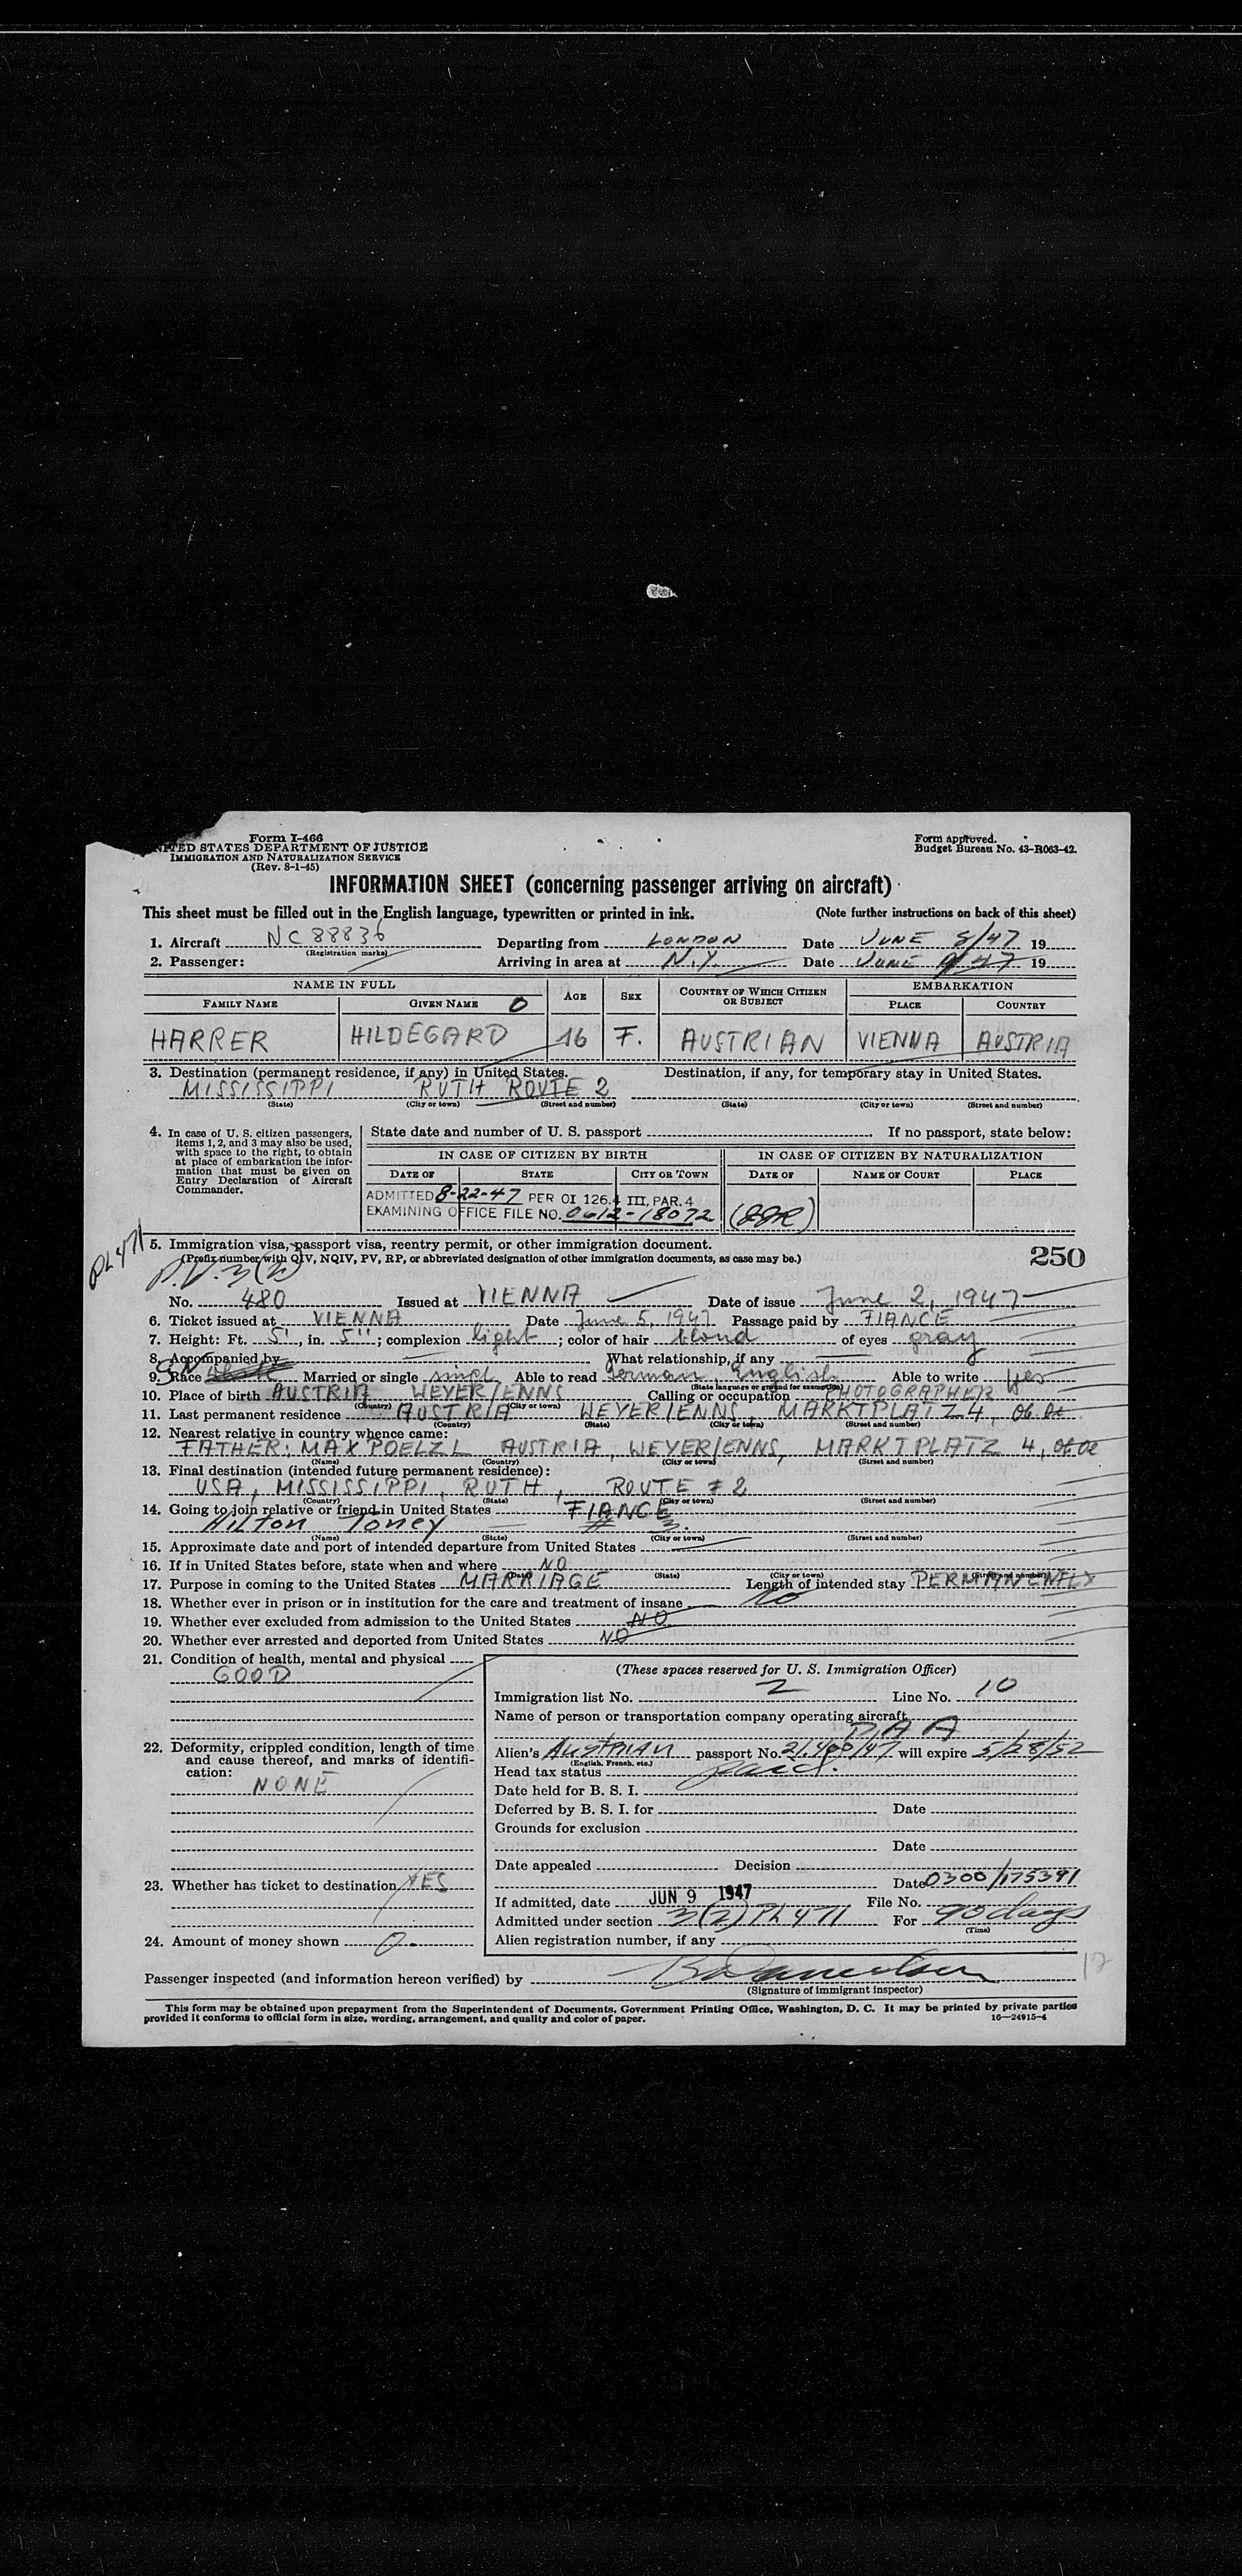 Form I-466
UNITED STATES DEPARTMENT OF JUSTICE
IMMIGRATION AND NATURALIZATION SERVICE
(Rev. 8-1-45)
Form approved.
Budget Bureau No. 43-R063-42.
INFORMATION SHEET (concerning passenger arriving on aircraft)
This sheet must be filled out in the English language, typewritten or printed in ink. (Note further instructions on back of this sheet)
1. Aircraft NC 88836 Departing from LONDON Date JUNE 8/47 19
(Registration marks)
2. Passenger: Arriving in area at N.Y. Date JUNE 9/47 19
NAME IN FULL AGE SEX COUNTRY OF WHICH CITIZEN OR SUBJECT EMBARKATION
FAMILY NAME GIVEN NAME O PLACE COUNTRY
HARRER HILDEGARD 16 F. AUSTRIAN VIENNA AUSTRIA
3. Destination (permanent residence, if any) in United States. Destination, if any, for temporary stay in United States.
MISSISSIPPI RUTH ROUTE 2
(State) (City or town) (Street and number) (State) (City or town) (Street and number)
4. In case of U. S. citizen passengers, items 1, 2, and 3 may also be used, with space to the right, to obtain at place of embarkation the information that must be given on Entry Declaration of Aircraft Commander.
State date and number of U. S. passport If no passport, state below:
IN CASE OF CITIZEN BY BIRTH IN CASE OF CITIZEN BY NATURALIZATION
DATE OF STATE CITY OR TOWN DATE OF NAME OF COURT PLACE
ADMITTED 8-22-47 PER OI 126.4 III, PAR. 4
EXAMINING OFFICE FILE NO. 0612-18072
PL 471
5. Immigration visa, passport visa, reentry permit, or other immigration document. 250
(Prefix number with QIV, NQIV, PV, RP, or abbreviated designation of other immigration documents, as case may be.)
No. 480 Issued at VIENNA Date of issue June 2, 1947
6. Ticket issued at VIENNA Date June 5, 1947 Passage paid by FIANCE
7. Height: Ft. 5', in. 5"; complexion light; color of hair blond of eyes gray
8. Accompanied by What relationship, if any
9. Race Married or single singl. Able to read German, English Able to write yes
(State language or ground for exemption)
10. Place of birth AUSTRIA WEYER/ENNS Calling or occupation PHOTOGRAPHER
(Country) (City or town)
11. Last permanent residence AUSTRIA WEYER/ENNS, MARKTPLATZ 4,
(Country) (State) (City or town) (Street and number)
12. Nearest relative in country whence came:
FATHER: MAX POELZL AUSTRIA, WEYER/ENNS, MARKTPLATZ 4,
(Name) (Country) (City or town) (Street and number)
13. Final destination (intended future permanent residence):
USA, MISSISSIPPI, RUTH, ROUTE # 2
(Country) (State) (City or town) (Street and number)
14. Going to join relative or friend in United States FIANCE
HILTON Toney
(Name) (State) (City or town) (Street and number)
15. Approximate date and port of intended departure from United States
16. If in United States before, state when and where NO
(Date) (State) (City or town) (Street and number)
17. Purpose in coming to the United States MARRIAGE Length of intended stay PERMANENTLY
18. Whether ever in prison or in institution for the care and treatment of insane no
19. Whether ever excluded from admission to the United States NO
20. Whether ever arrested and deported from United States NO
21. Condition of health, mental and physical
GOOD
22. Deformity, crippled condition, length of time and cause thereof, and marks of identification:
NONE
23. Whether has ticket to destination YES
24. Amount of money shown 0.
(These spaces reserved for U. S. Immigration Officer)
Immigration list No. 2 Line No. 10
Name of person or transportation company operating aircraft
PAA
Alien's Austrian passport No. 21.400/47 will expire 5/28/52
(English, French, etc.)
Head tax status paid.
Date held for B. S. I.
Deferred by B. S. I. for Date
Grounds for exclusion
Date
Date appealed Decision
Date 0300/175391
If admitted, date JUN 9 1947 File No.
Admitted under section 3(2) PL 471 For 90 days
(Time)
Alien registration number, if any
Passenger inspected (and information hereon verified) by
(Signature of immigrant inspector)
This form may be obtained upon prepayment from the Superintendent of Documents, Government Printing Office, Washington, D. C. It may be printed by private parties
provided it conforms to official form in size, wording, arrangement, and quality and color of paper. 16—24915-4